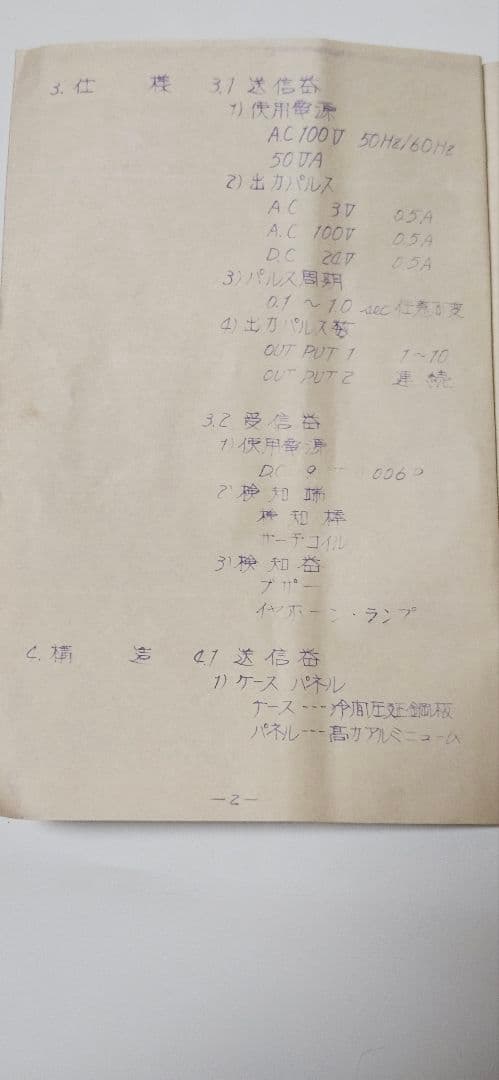 3. 仕 様 3.1 送信器
1) 使用電源
A.C 100V 50Hz/60Hz
50VA
2) 出力パルス
A C 3V 0.5A
A.C 100V 0.5A
D.C 24V 0.5A
3) パルス周期
0.1 ～ 1.0 sec 任意可変
4) 出力パルス数
OUT PUT 1 1～10
OUT PUT 2 連続
3.2 受信器
1) 使用電源
D.C 9 006P
2) 検知端
検知棒
サーチコイル
3) 検知器
ブザー
イヤホーン・ランプ
4. 構 造 4.1 送信器
1) ケース パネル
ケース---冷間圧延鋼板
パネル---高力アルミニューム
—2—